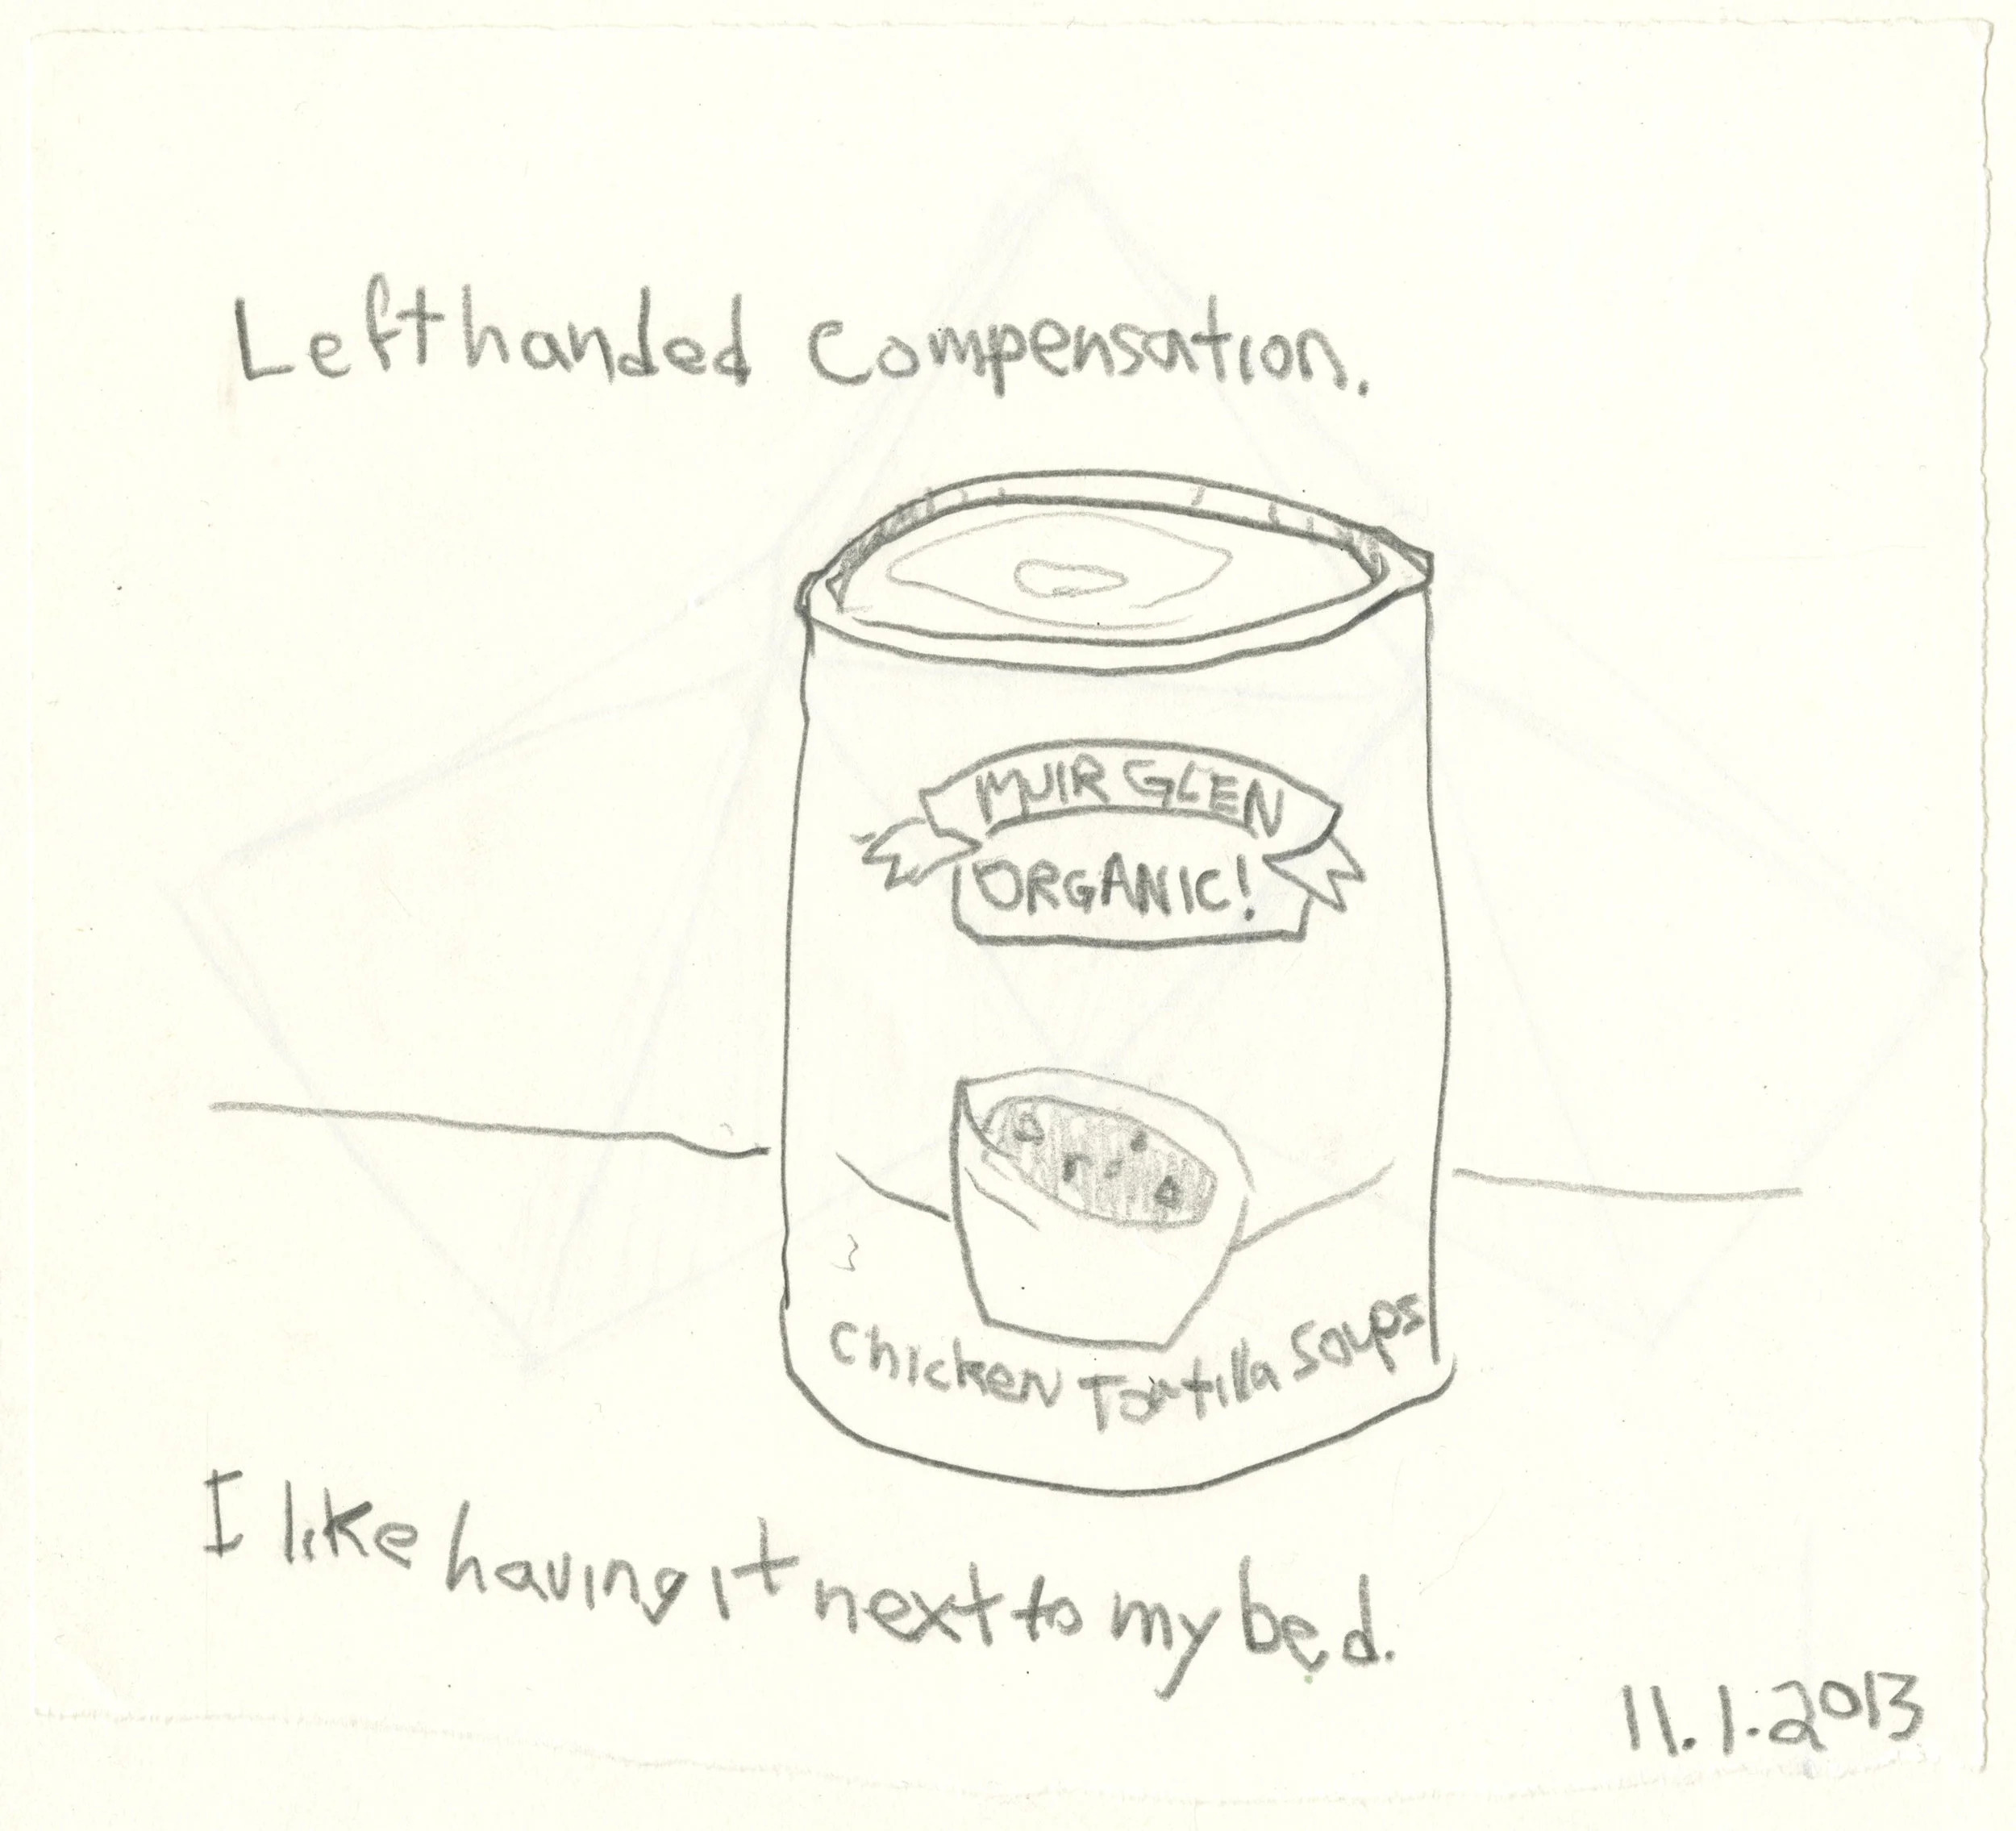 Left handed compensation.
MUIR GLEN
ORGANIC!
Chicken Tortilla Soups
I like having it next to my bed.
11.1.2013